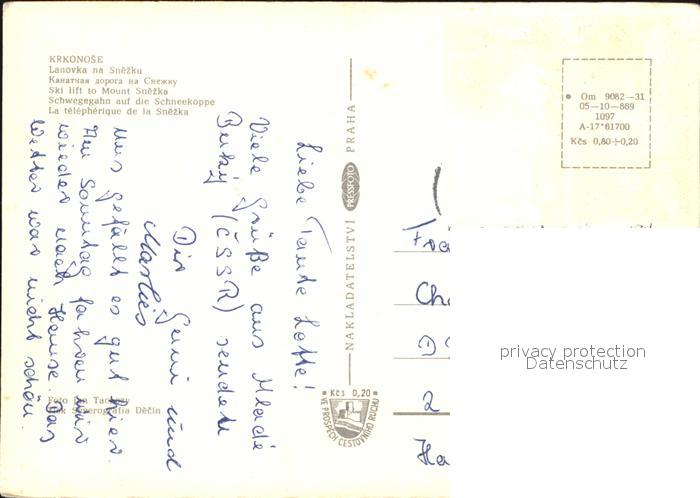 KRKONOŠE
Lanovka na Sněžku
Канатная дорога на Снежку
Ski lift to Mount Sněžka
Schwegegahn auf die Schneekoppe
La téléphérique de la Sněžka
Om 9082—31
05—10—869
1097
A-17*61700
Kčs 0,80+0,20
NAKLADATELSTVÍ PRESSFOTO PRAHA
Liebe Tante Lotte!
Viele Grüße aus Mladé
Buky (ČSSR) senden
Dir und
Marlies
Uns gefällt es gut hier.
Am Sonntag fahren wir
wieder nach Hause. Das
Wetter war nicht schön.
Foto Jan
Tisk Severografia Děčín
Kčs 0,20
VE PROSPĚCH CESTOVNÍHO RUCHU
Ch
2
Ha
privacy protection
Datenschutz